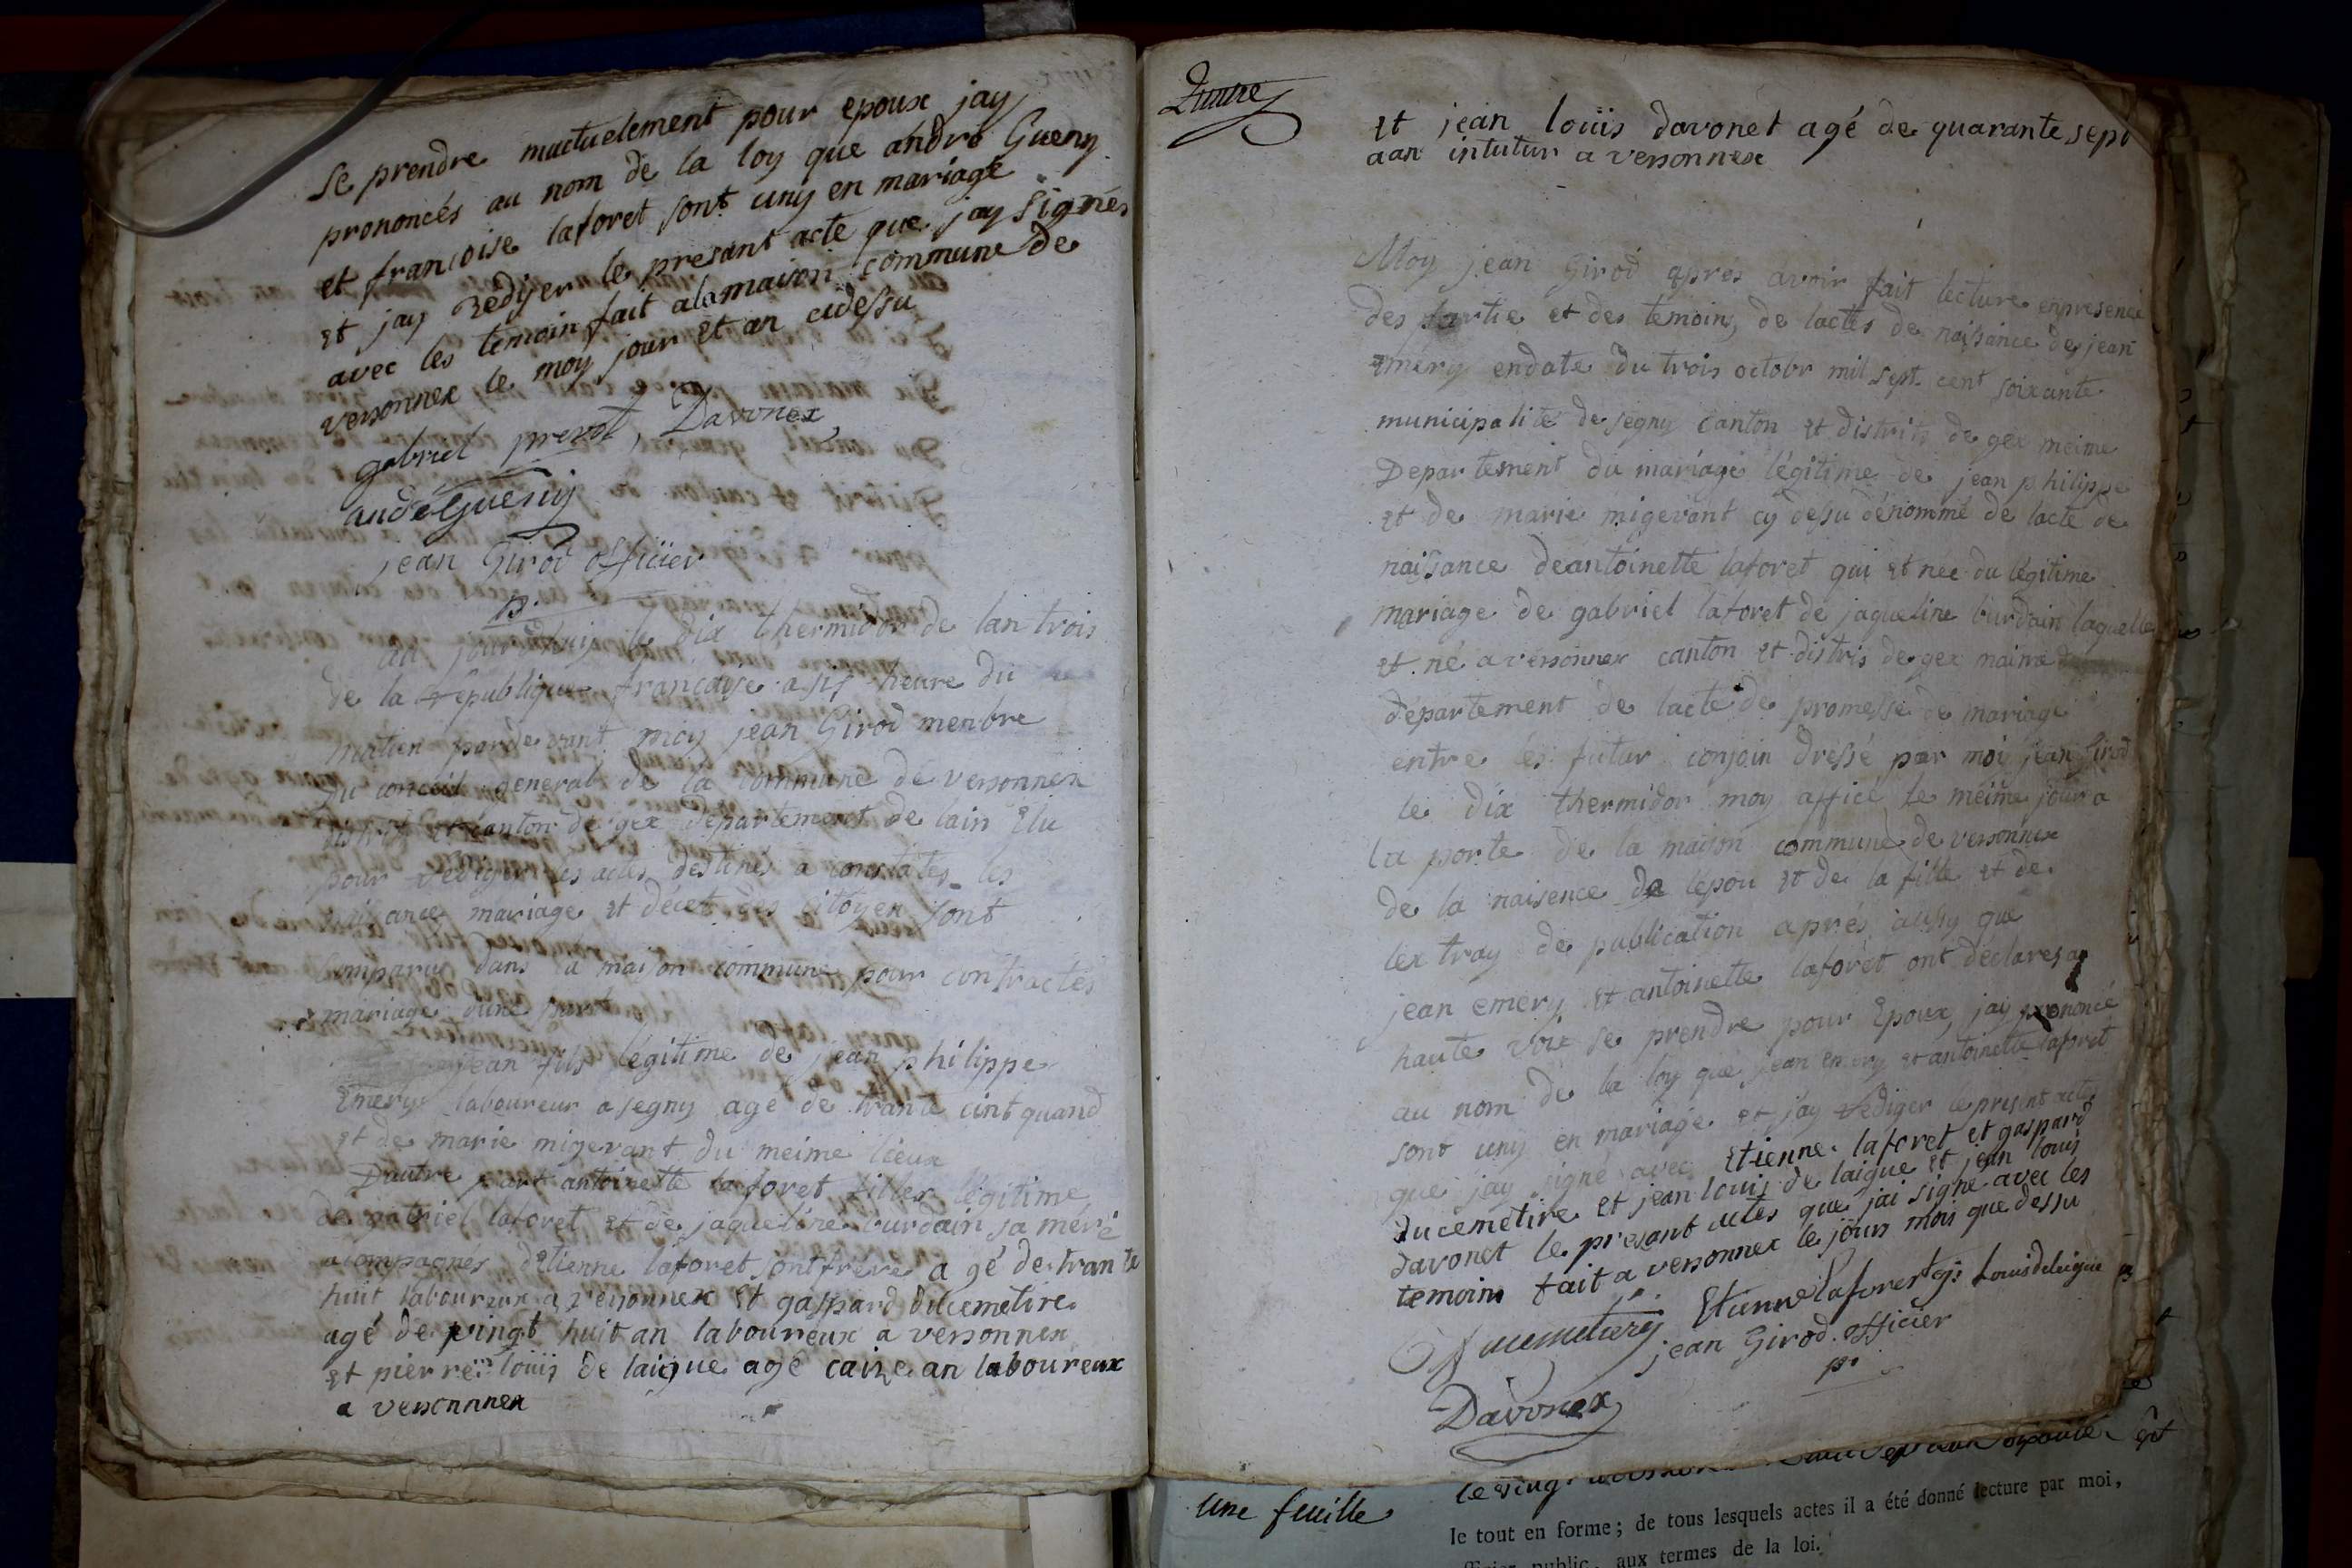 se prendre muctuelement pour epoux jay
prononcés au nom de la loy que andré Gueny
et francoise laforet sont uny en mariage
et jay Redijer le presant acte que jay signés
avec les temoin fait a la maison commune de
versonnex le moy jour et an cidessu
gabriel prevot, Davonex
andé Gueny
jean Girod officier
p.
au jourdhuis le dix thermidor de lan trois
de la republique francaise a sis heure du
matien pardevant moy jean Girod menbre
du conceil general de la commune de versonnex
district et canton de gex departement de lain Elu
pour rediger les actes destinés a constates les
naissance mariage et décet des citoyen sont
comparus dans la maison commune pour contractes
mariage dune part
jean fils légitime de jean philippe
Emery laboureur a segny agé de trante cint quand
et de marie migerant du meime lieux
Dautre part antoinette laforet filles légitime
de gabriel laforet et de jaqueline burdain sa méré
acompagnes detienne laforet sont frere a gé de trante
huit laboureux a versonnex et gaspard ducemetire
agé de vingt huit an laboureux a versonnex
et pierre louis de laigue agé caize an laboureux
a versonnnex
et jean louis davonet agé de quarante sept
aan intutur a versonnex
Moy jean Girod apres avoir fait lecture enpresence
des partie et des temoins, de lactes de naisance de jean
emery endate du trois octobr mil sept cent soixante
municipalité de segny canton et distrits de gex meime
Departement du mariage légitime de jean philippe
et de marie migerant cy dessu dénommé de lacte de
naisance deantoinette laforet qui et née du légitime
mariage de gabriel laforet de jaqueline burdain laquelle
et né a versonnex canton et distris de gex maime
département de lacte de promesse de mariage
entre les futur conjoin dressé par moi jean Girod
le dix thermidor moy affice le meime jour a
la porte de la maison commune de versonnex
de la naisence de lepou et de la fille et de
lex tray de publication aprés aussy que
jean emery et antoinette laforet ont declares a
haute voix se prendre pour Epoux, jay prononcé
au nom de la loy que jean emery et antoinette laforet
sont uny en mariage et jay rediger le present actes
que jay signé avec Etienne laforet et gaspard
ducemetire et jean louis de laigue et jean louis
davonet le presant actes que jai signe avec les
temoins fait a versonnex le jours mois que dessu
Etienne laforest Louis delaigue
G ducemetiere
jean Girod officier
p.
Davonex
une feuille
le tout en forme ; de tous lesquels actes il a été donné lecture par moi,
public, aux termes de la loi.